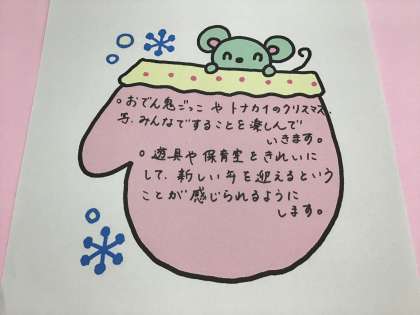 。おでん鬼ごっこ や トナカイのクリスマス、
号、みんなですることを楽しんで
いきます。
。遊具や保育室をきれいに
して、新しい年を迎えるという
ことが感じられるように
します。